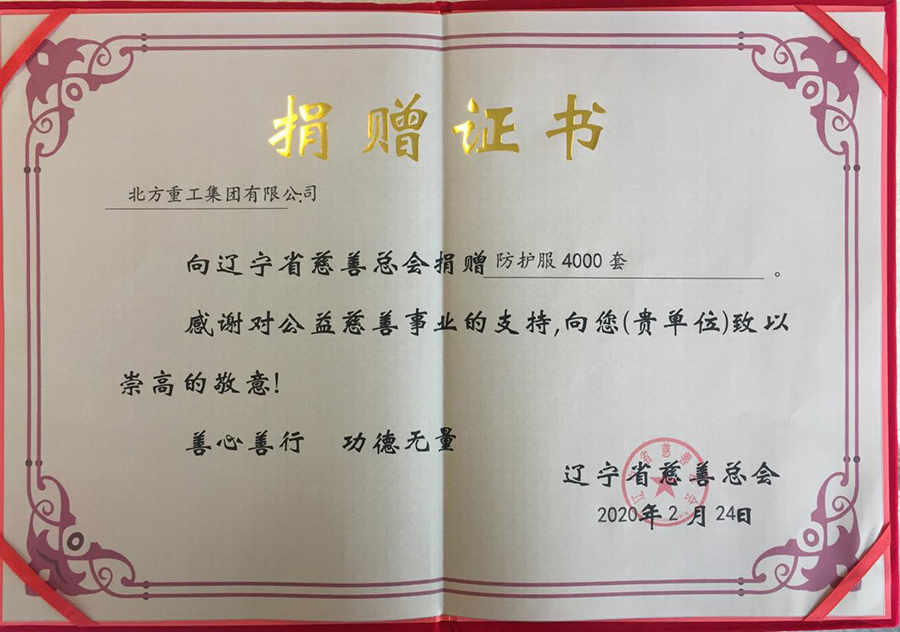 捐赠证书
北方重工集团有限公司:
向辽宁省慈善总会捐赠防护服4000套。
感谢对公益慈善事业的支持,向您(贵单位)致以
崇高的敬意!
善心善行 功德无量
辽宁省慈善总会
辽宁省慈善总会
2020年2月24日